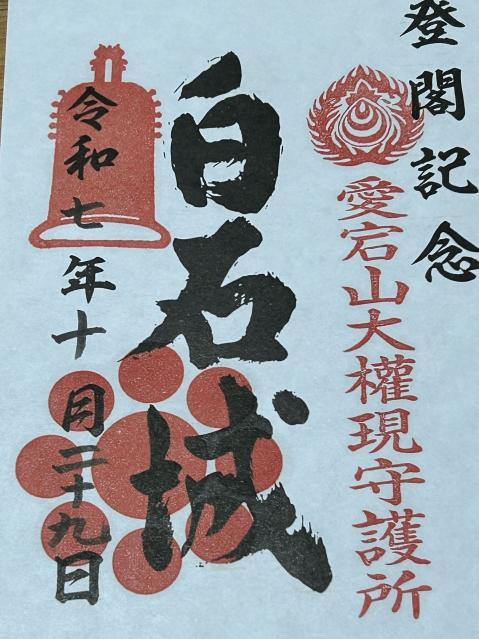 登閣記念
愛宕山大權現守護所
白石城
令和七年十月二十九日